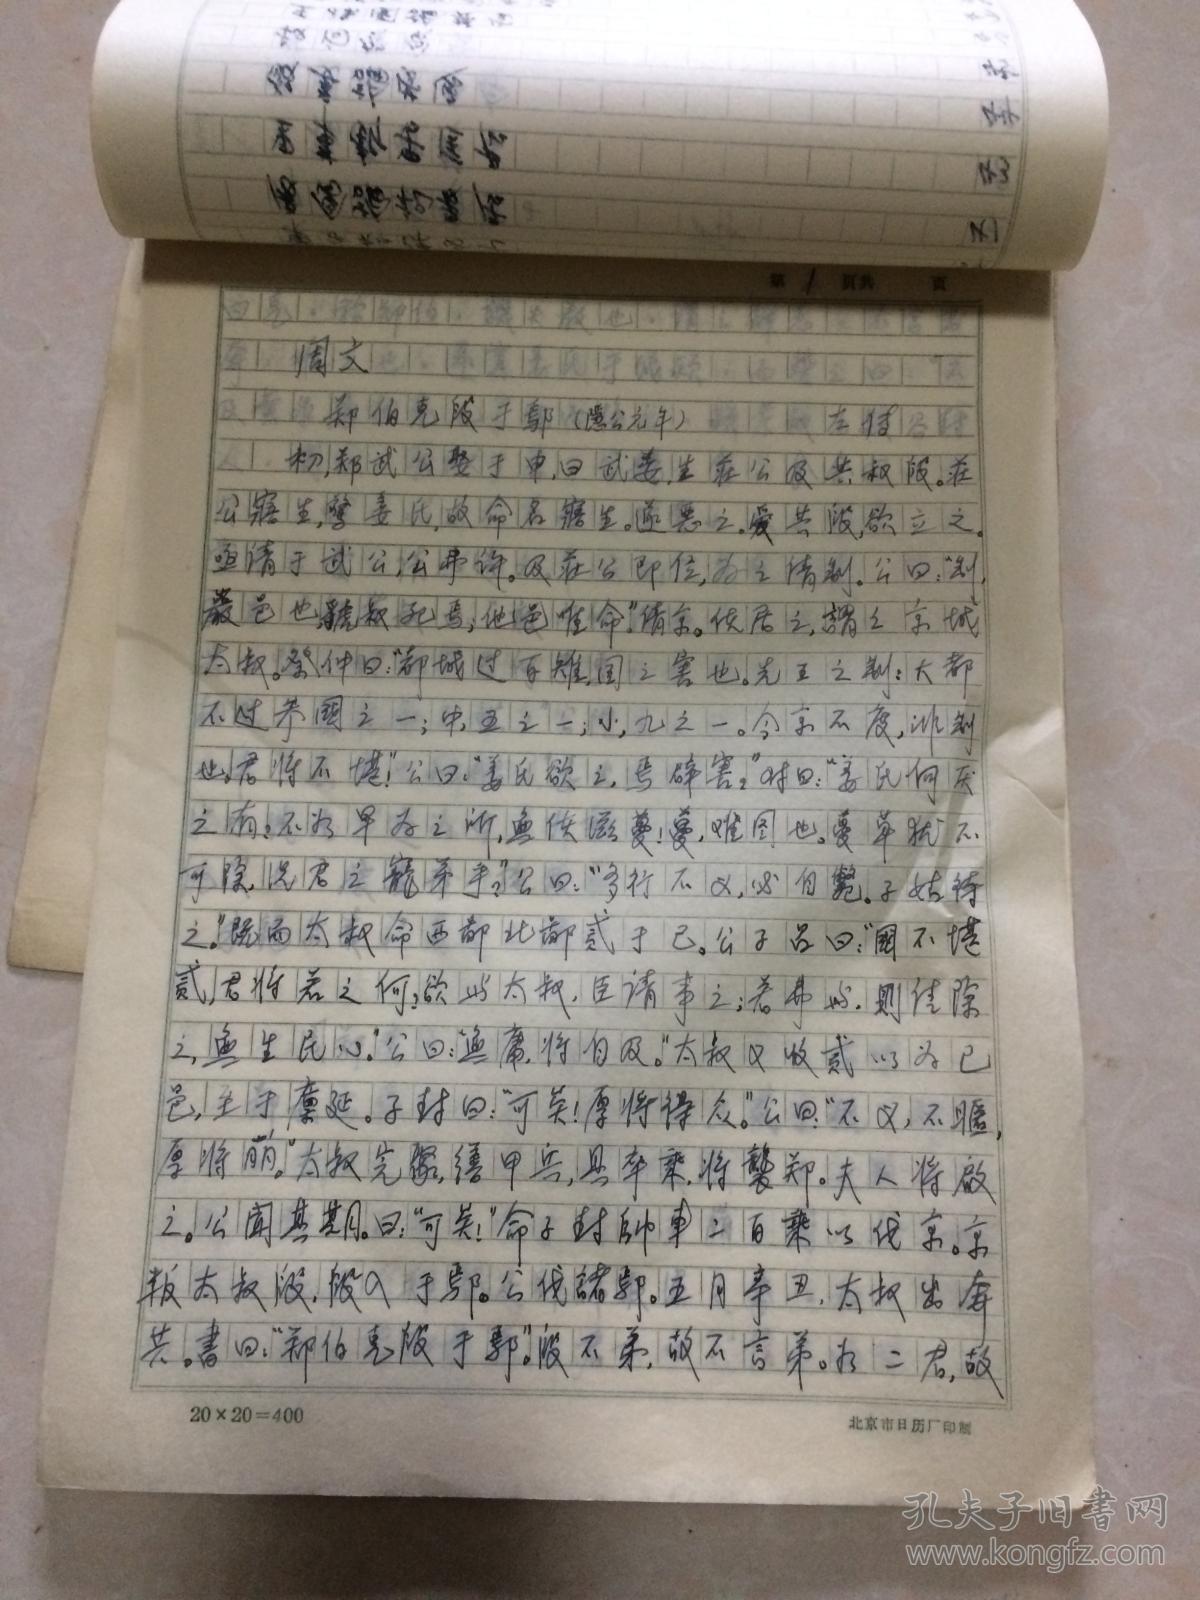 第1页共 页
周文
郑伯克段于鄢(隱公元年) 左传
初,郑武公娶于申,曰武姜,生莊公及共叔段。莊
公寤生,驚姜氏,故命名寤生。遂惡之。愛共段,欲立之。
亟请于武公,公弗许。及莊公即位,为之请制。公曰:“制,
嚴邑也,虢叔死焉,他邑唯命。”请京。使居之,謂之京城
太叔。祭仲曰:“都城过百雉,国之害也。先王之制:大都
不过叁國之一;中,五之一;小,九之一。今京不度,非制
也。君将不堪!”公曰:“姜氏欲之,焉辟害?”对曰:“姜氏何厌
之有?不如早为之所,無使滋蔓!蔓,难图也。蔓草犹不
可除,况君之寵弟乎?”公曰:“多行不义,必自斃。子姑待
之。”既而太叔命西鄙北鄙贰于己。公子吕曰:“國不堪
贰,君将若之何?欲与太叔,臣请事之;若弗与,则佳除
之,無生民心。”公曰:“無庸,将自及。”太叔又收贰以为己
邑,至于廪延。子封曰:“可矣!厚将得众。”公曰:“不义,不暱,
厚将萌。”太叔完聚,缮甲兵,具卒乘,将襲郑。夫人将啟
之。公聞其期。曰:“可矣!”命子封帥車二百乘以伐京。京
叛太叔段,段入于鄢。公伐諸鄢。五月辛丑,太叔出奔
共。書曰:“郑伯克段于鄢。”段不弟,故不言弟。如二君,故
20×20=400
北京市日历厂印制
孔夫子旧书网
www.kongfz.com